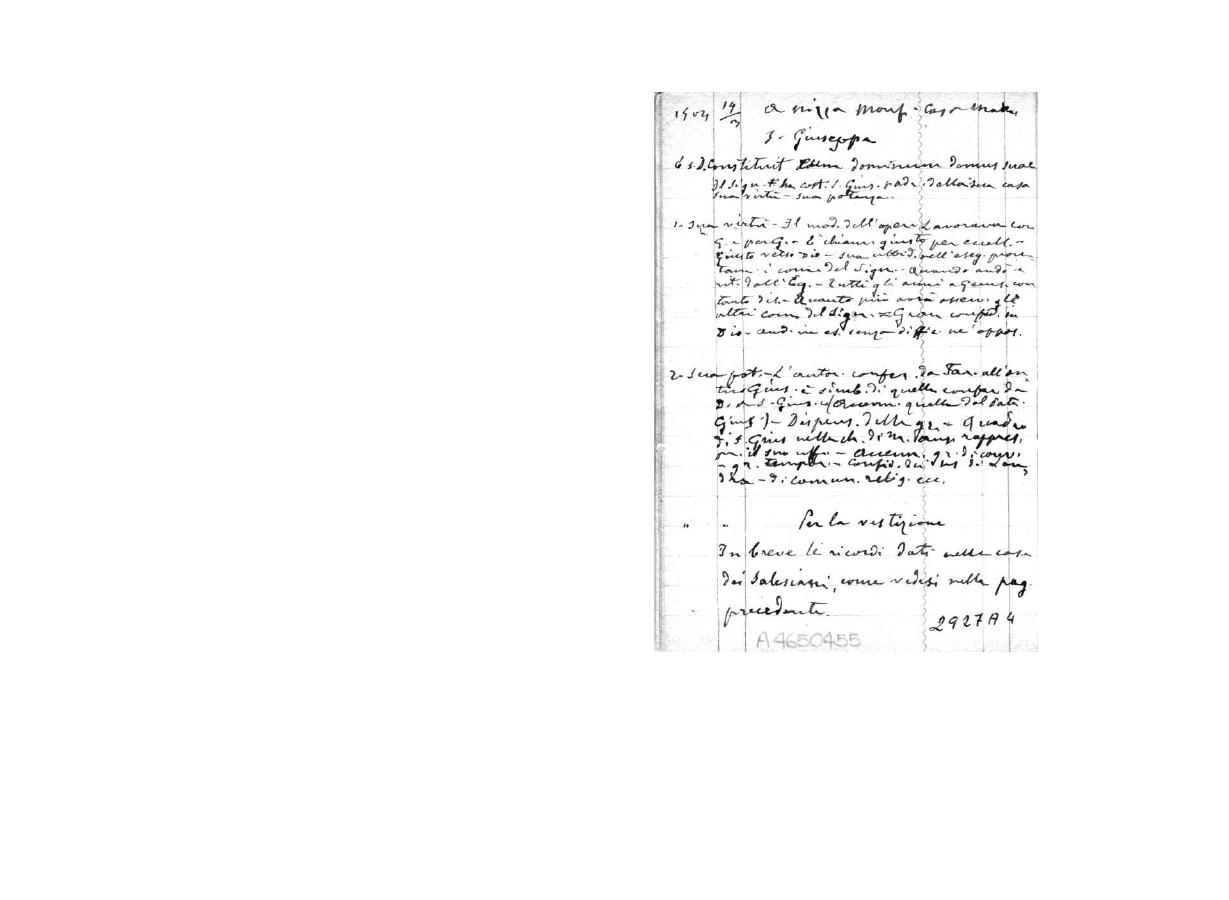 1904 19/3 a Nizza Monf - Casa Madre
S. Giuseppe
Constituit Eum dominum domus suae
Il Sign. + ha cost. S. Gius. padr. della sua casa
sua virtù - sua potenza.
1. Sua virtù - Il mod. dell'oper. Lavorava con
G. e per G. - È chiam. giusto per eccell. -
Giusto verso Dio - sua ubbid. nell'eseg. pron-
tam. i com. del Sign. - Quando andò e
rit. dall'Eg. - Tutti gli anni a Gerus. con
tanto dis. - Quanto più avrà osserv. gli
altri com. del Sign. = Gran confid. in
Dio - and. in es. senza diffic. nè oppos.
2. Sua pot. - L'autor. confer. da Far. all'an
tico Gius. è simb. di quella confer. da
D. a S. Gius. (Accenn. quella del
Gius.) - Dispens. delle gr. - Quadro
di S. Gius. nella ch. di M. Aus. rappres.
il suo uffi. - Accenn. gr. di
- gr. tempor. - Confid. dei di Lon,
dra - di comun. relig. ecc.
" " Per la vestizione
In breve li ricordi dati nella casa
dei Salesiani, come vedesi nella pag.
precedente.
2927 A 4
A 4650455